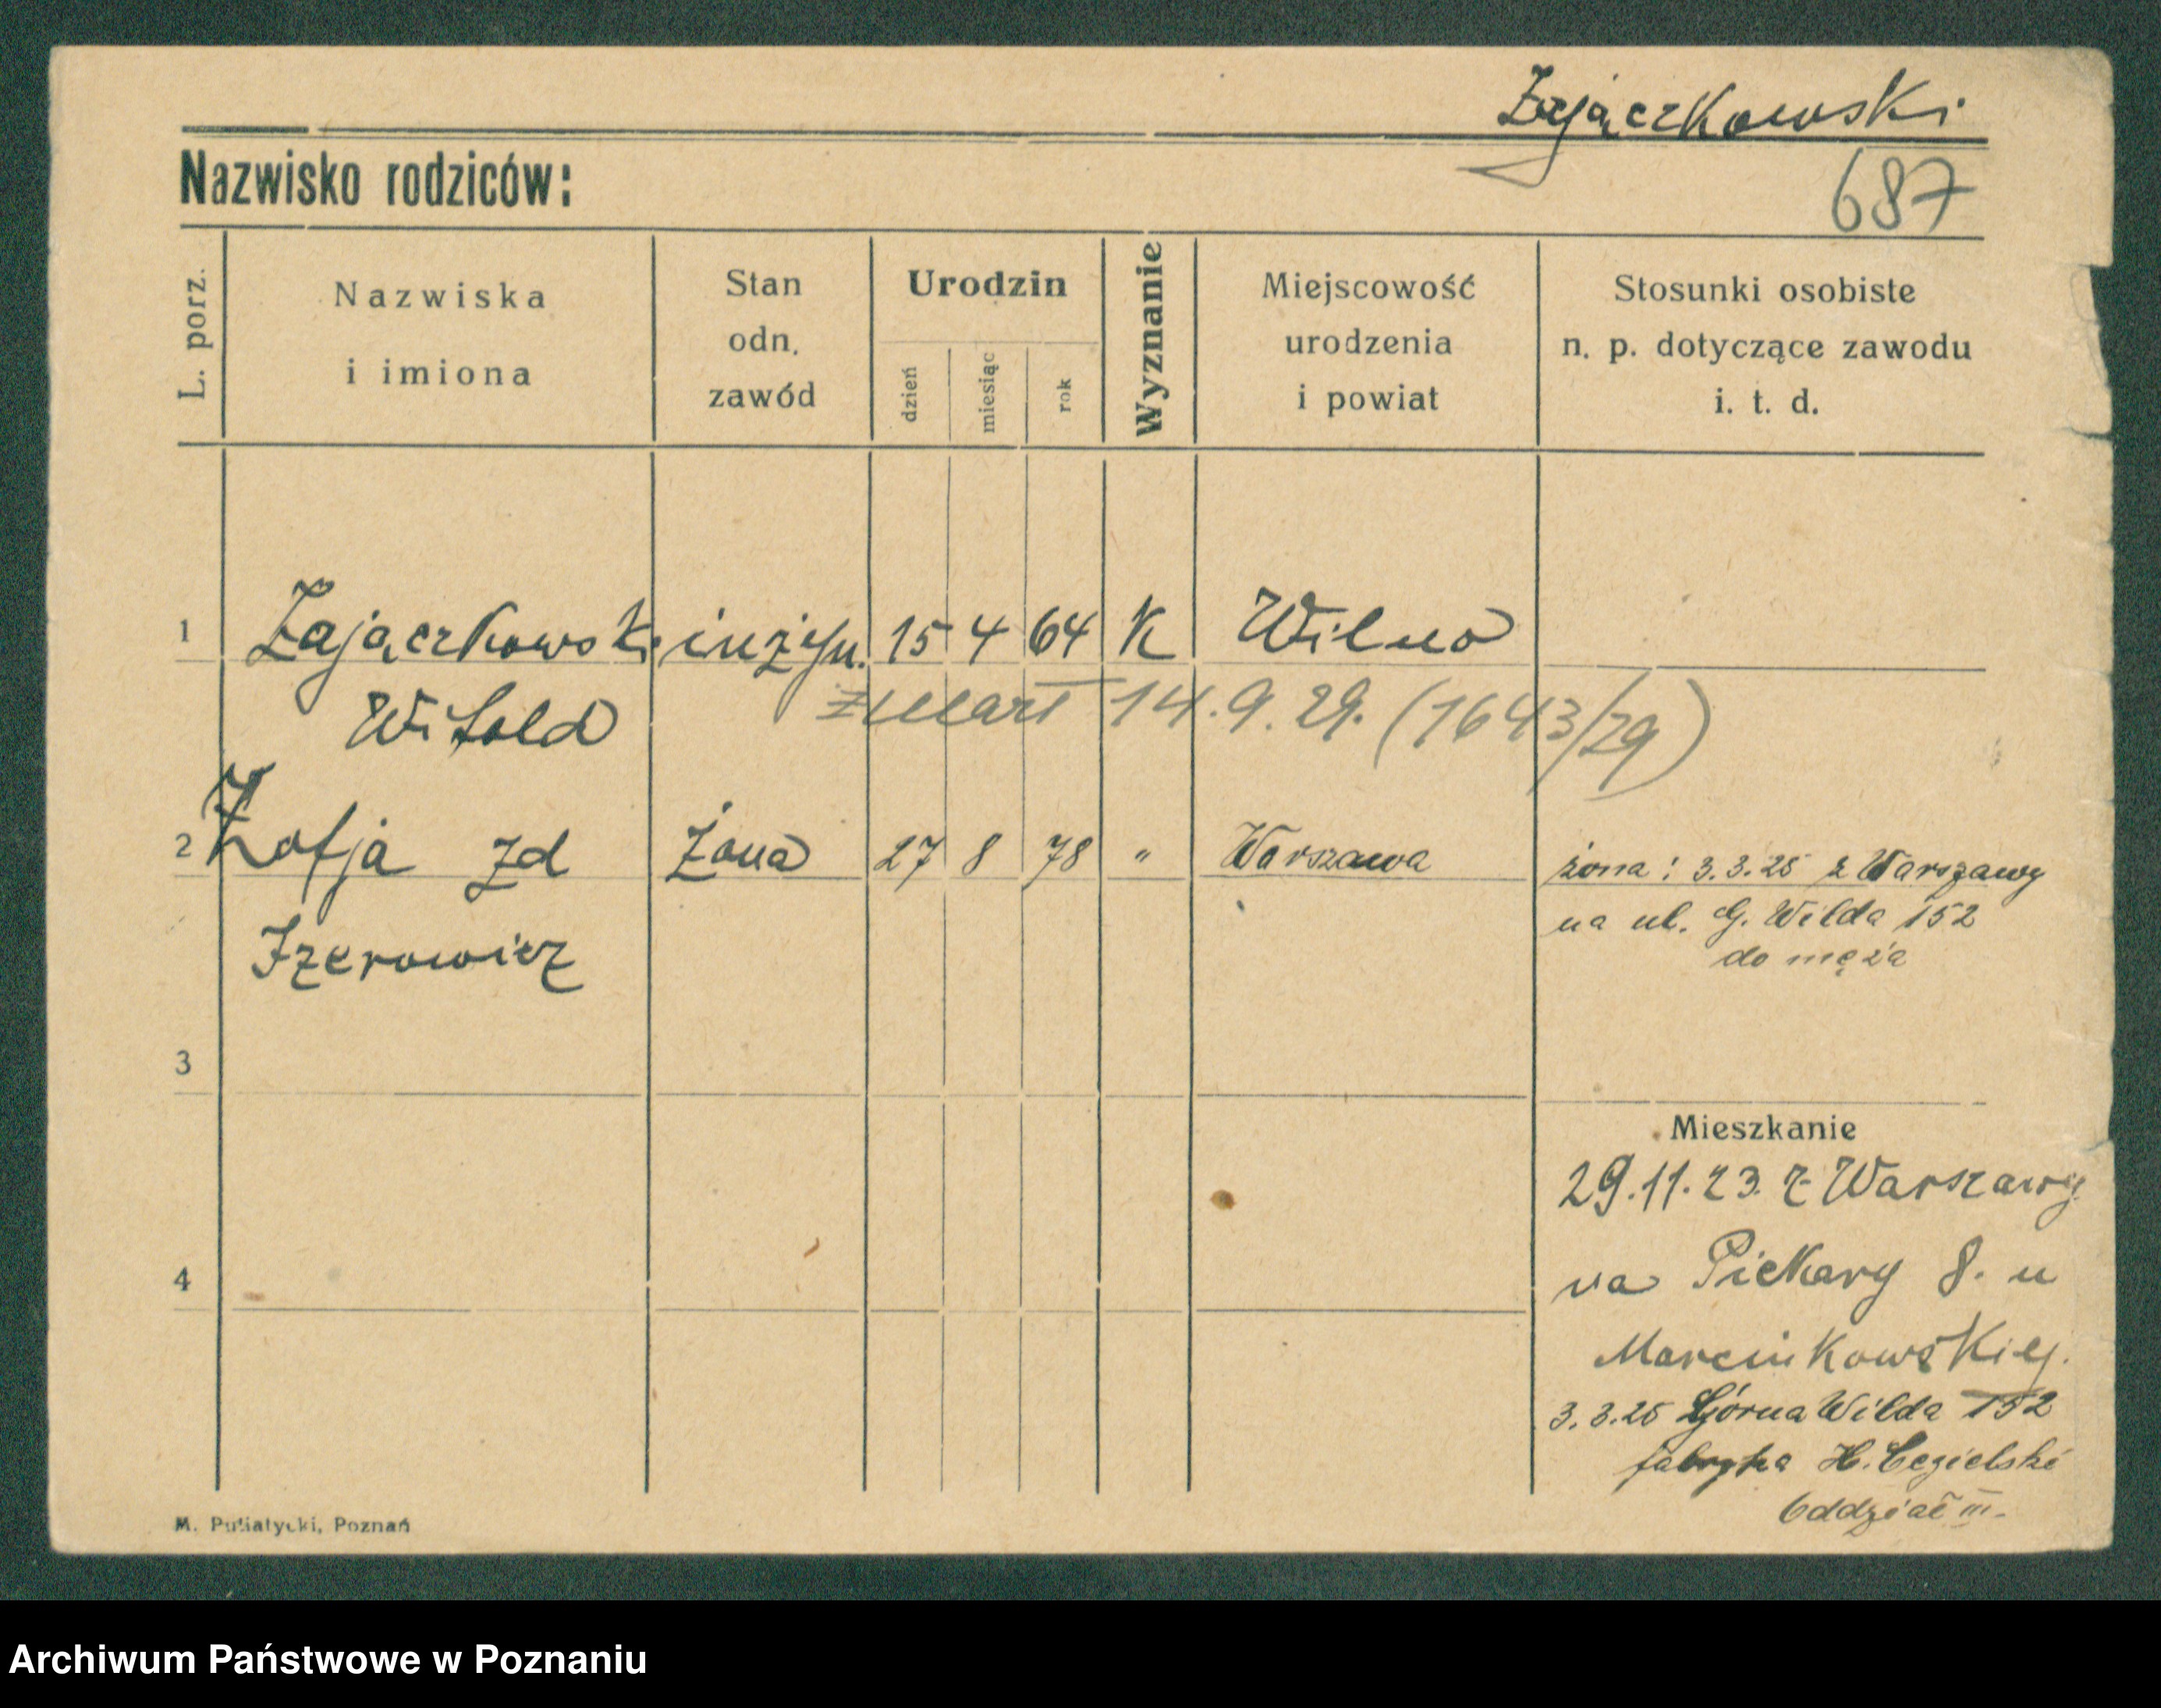 Zajączkowski
687
Nazwisko rodziców:
L. porz.
Nazwiska
i imiona
Stan
odn.
zawód
Urodzin
dzień
miesiąc
rok
Wyznanie
Miejscowość
urodzenia
i powiat
Stosunki osobiste
n. p. dotyczące zawodu
i. t. d.
1 Zajączkowski inżyn. 15 4 64 K Wilno
Witold
zmarł 14.9.29. (1643/29)
2 Zofja zd żona 27 8 78 " Warszawa
Izerowicz
żona: 3.3.25 z Warszawy
na ul. G. Wilda 152
do męża
3
Mieszkanie
29.11.23. z Warszawy
na Piekary 8. u
Marcinkowskiej.
4
3.3.25 Górna Wilda 152
fabryka H. Cegielski
Oddział III.
M. Putiatycki, Poznań
Archiwum Państwowe w Poznaniu